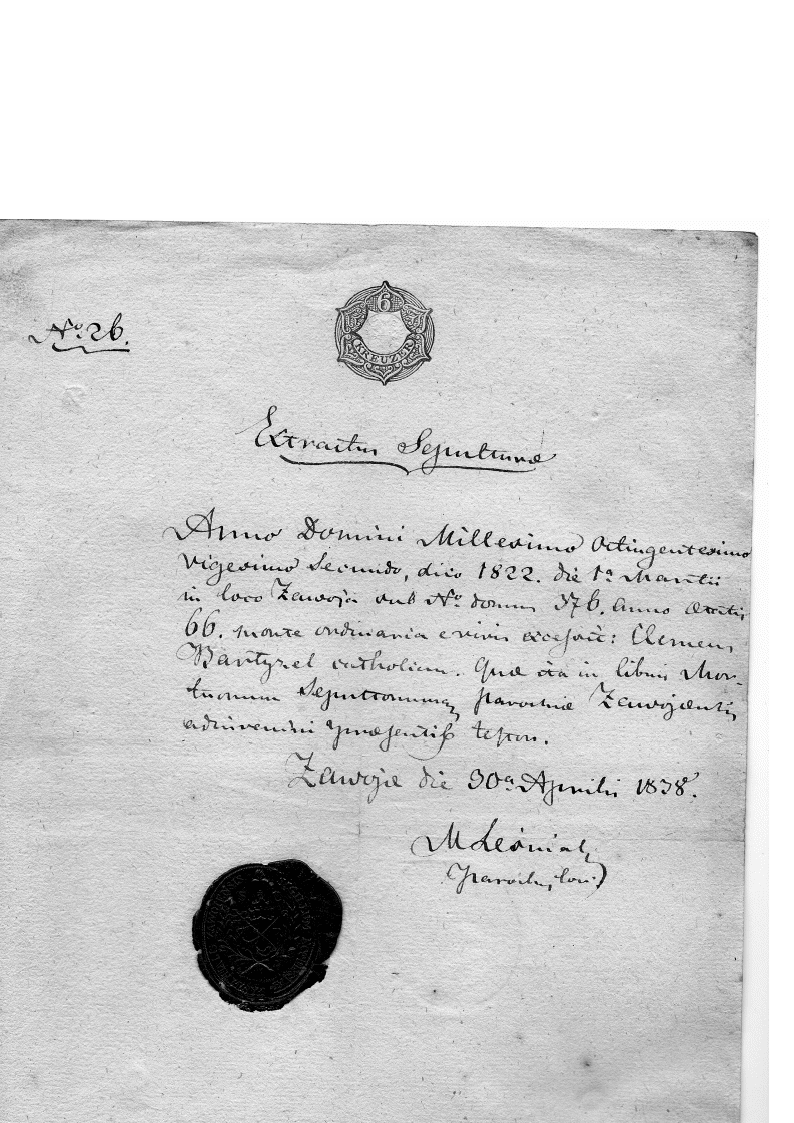 6
KREUZER
No. 26.
Extractus Sepulturæ
Anno Domini Millesimo Octingentesimo
vigesimo Secundo, dico 1822. die 1a Martii
in loco Zawoja sub No. domus 376. anno ætatis
66. morte ordinaria e vivis excessit: Clemens
Bartyzel catholicus. Quæ ita in libris Mor-
tuorum Sepultorumque parochiæ Zawojensis
adinveniri præsentib testor.
Zawoja die 30a Aprilis 1838.
M Leśniak
Parochus loci